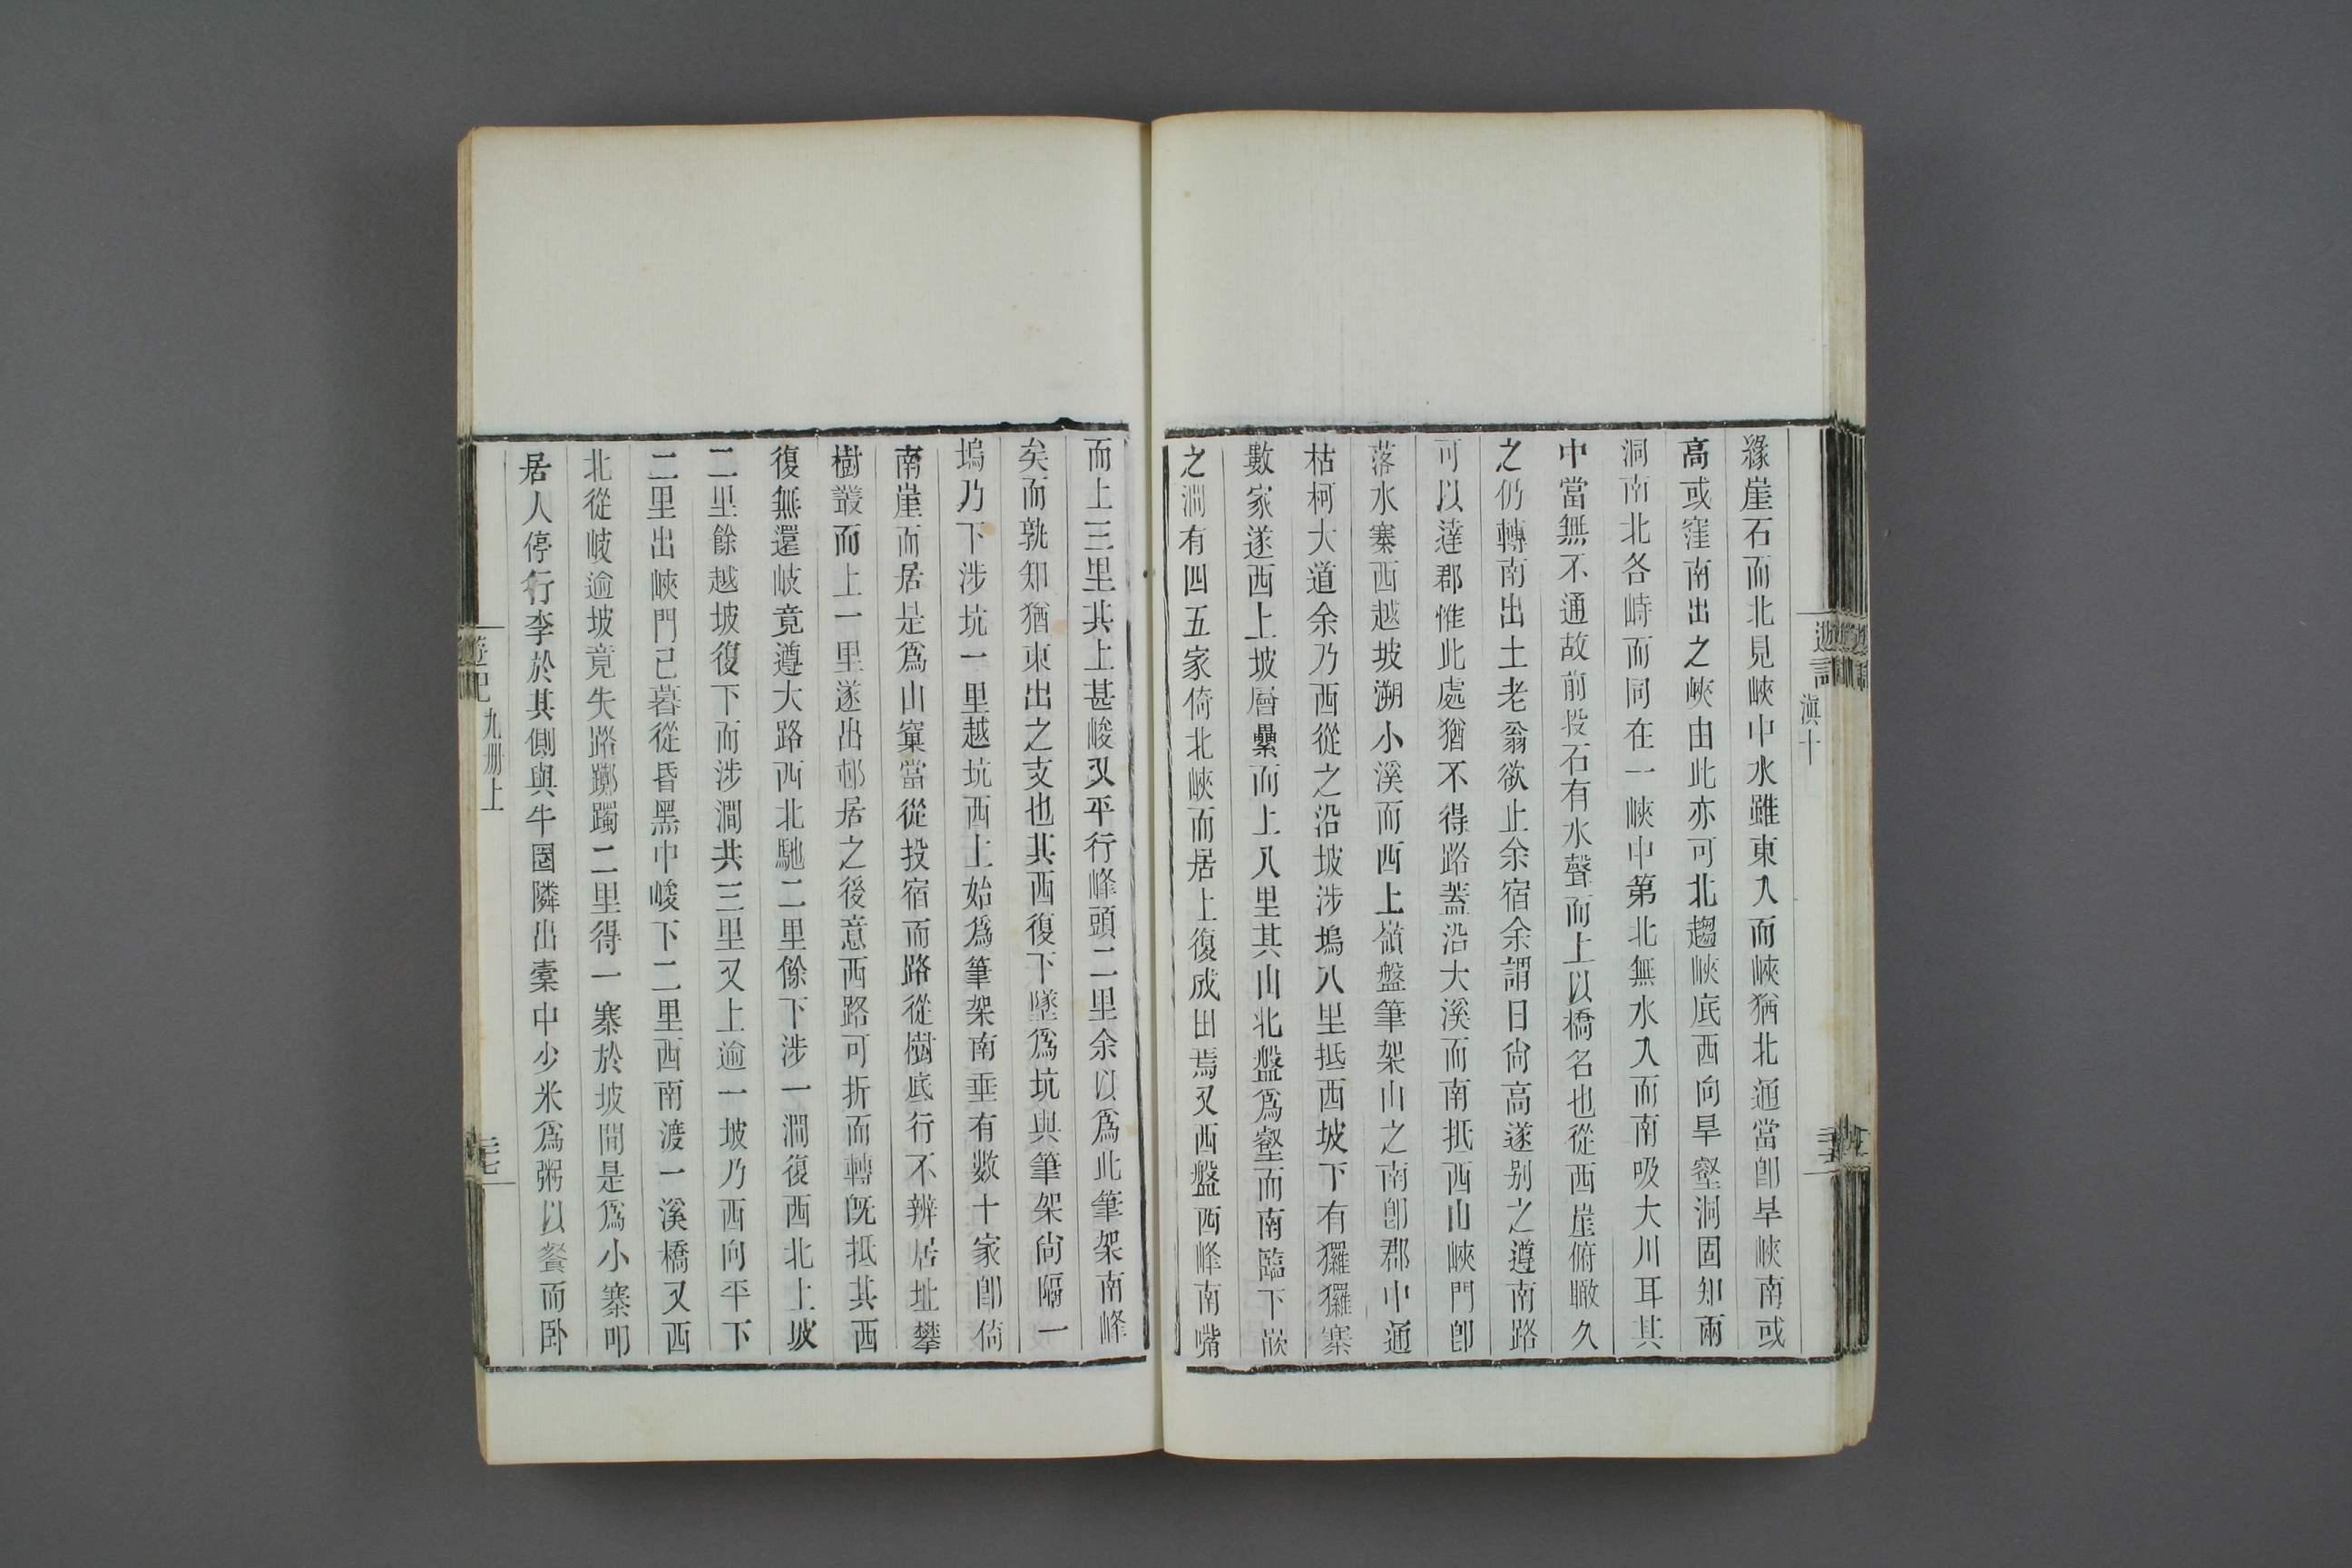 遊記
滇十
緣崖石而北見峽中水雖東入而峽猶北通當卽旱峽南或
高或窪南出之峽由此亦可北趨峽底西向旱壑洞固知兩
洞南北各峙而同在一峽中第北無水入而南吸大川耳其
中當無不通故前投石有水聲而上以橋名也從西崖俯瞰久
之仍轉南出土老翁欲止余宿余謂日尙高遂别之遵南路
可以達郡惟此處猶不得路蓋沿大溪而南抵西山峽門卽
落水寨西越坡溯小溪而西上嶺盤筆架山之南卽郡中通
枯柯大道余乃西從之沿坡涉塢八里抵西坡下有玀玀寨
數家遂西上坡層纍而上八里其山北盤爲壑而南臨下嵌
之澗有四五家倚北峽而居上復成田焉又西盤西峰南嘴
而上三里其上甚峻又平行峰頭二里余以爲此筆架南峰
矣而孰知猶東出之支也其西復下墜爲坑與筆架尙隔一
塢乃下涉坑一里越坑西上始爲筆架南垂有數十家卽倚
南崖而居是爲山窠當從投宿而路從樹底行不辨居址攀
樹叢而上一里遂出邨居之後意西路可折而轉旣抵其西
復無還岐竟遵大路西北馳二里餘下涉一澗復西北上坡
二里餘越坡復下而涉澗共三里又上逾一坡乃西向平下
二里出峽門已暮從昏黑中峻下二里西南渡一溪橋又西
北從岐逾坡竟失路躑躅二里得一寨於坡間是爲小寨叩
居人停行李於其側與牛圈隣出橐中少米爲粥以餐而卧
遊記
九册上